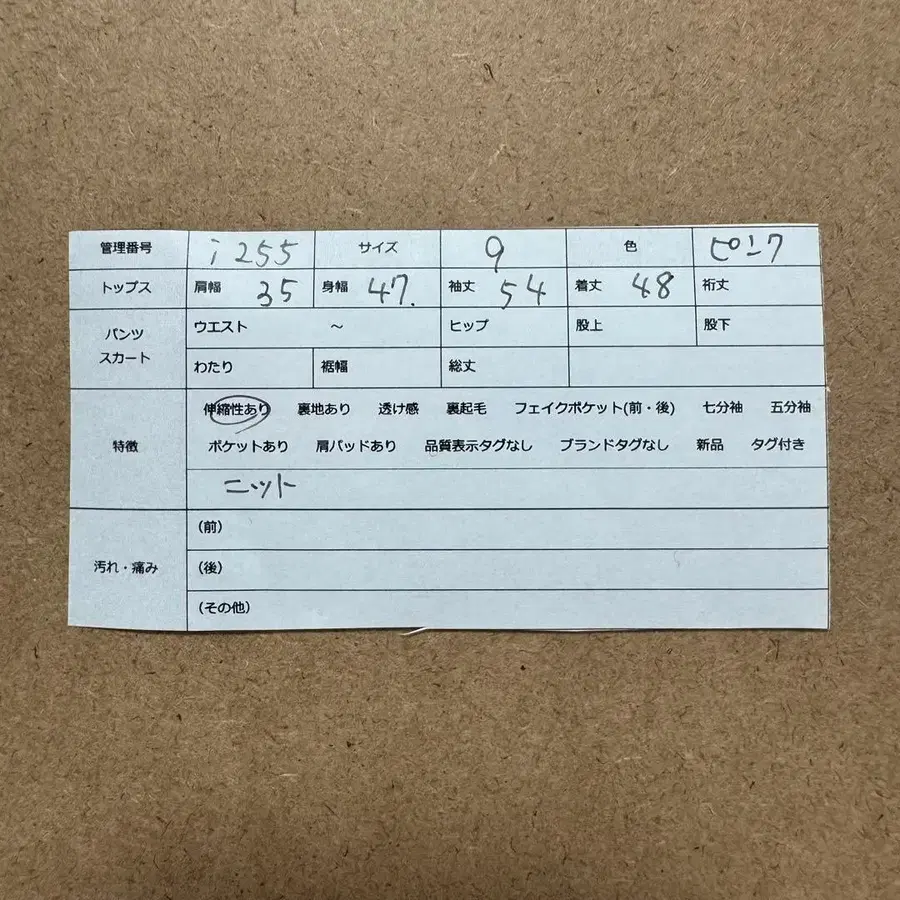 管理番号 i255 サイズ 9 色 ピンク
トップス 肩幅 35 身幅 47. 袖丈 54 着丈 48 裄丈
パンツ スカート
ウエスト ～ ヒップ 股上 股下
わたり 裾幅 総丈
特徴
伸縮性あり 裏地あり 透け感 裏起毛 フェイクポケット(前・後) 七分袖 五分袖
ポケットあり 肩パッドあり 品質表示タグなし ブランドタグなし 新品 タグ付き
ニット
汚れ・痛み
（前）
（後）
（その他）